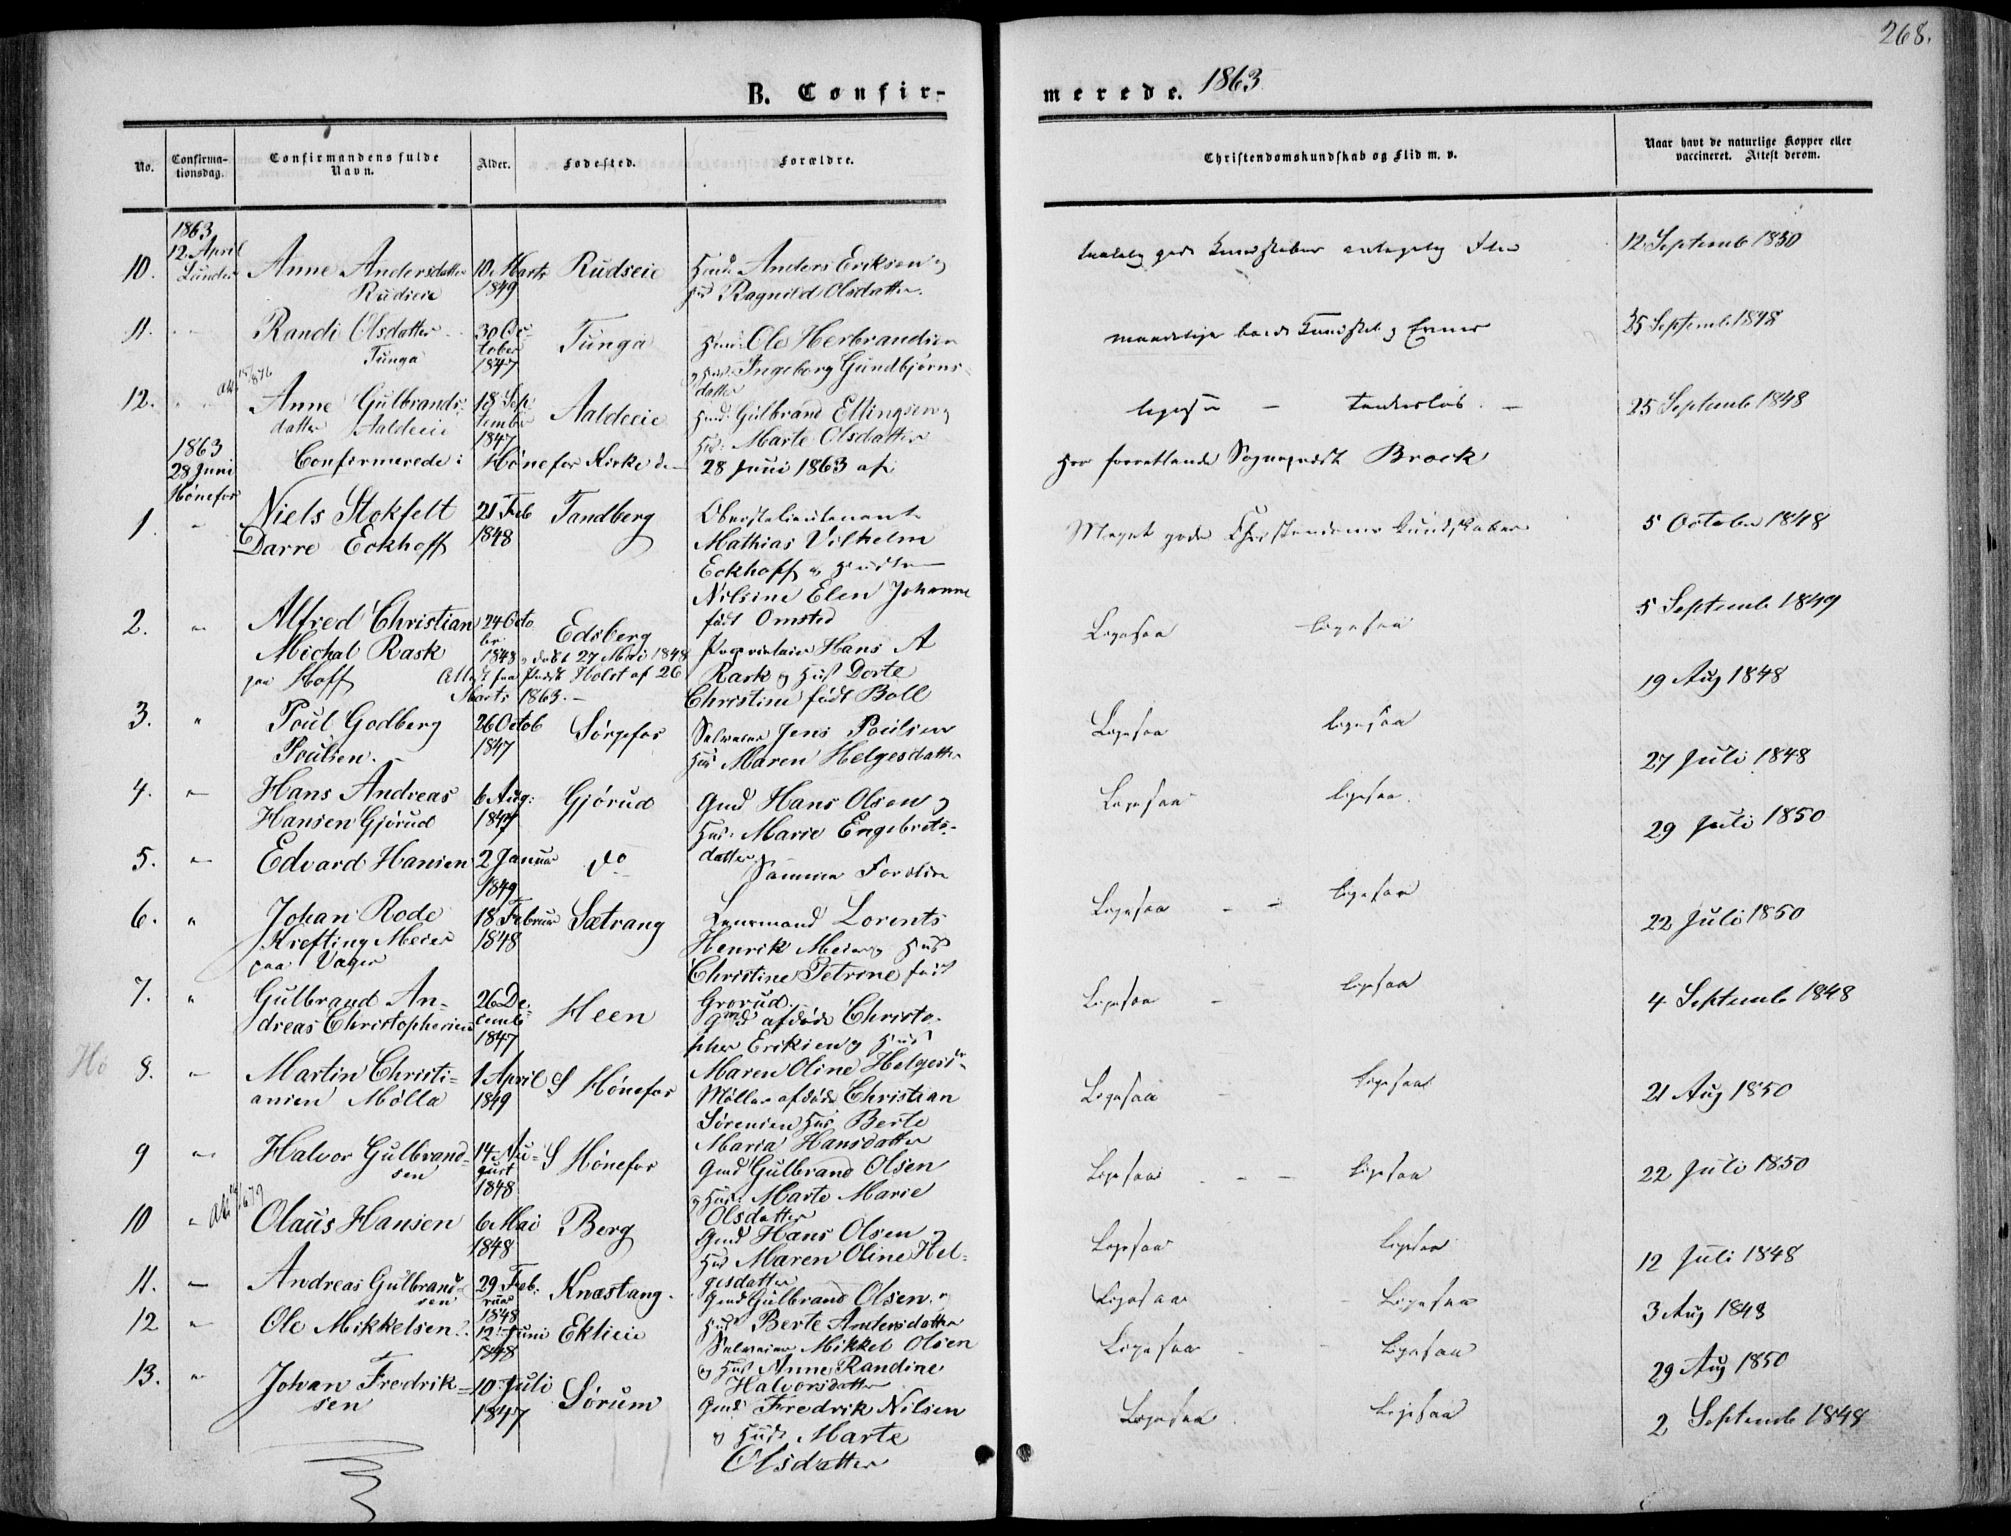 268.
B. Confir-
merede. 1863
No.
Confirma-
tionsdag.
Confirmandens fulde
Navn.
Alder.
Fødested.
Forældre.
Christendomskundskab og Flid m. v.
Naar havt de naturlige Kopper eller
vaccineret. Attest derom.
1863
12 April
Lunder
10. Anne Andersdatter
Rudseie
10. Marts
1849
Rudseie
Anders Eriksen
Ragnild Olsdatter.
gode Kundskaber
12 Septemb 1850
11. Randi Olsdatter
Tunga
30 Oc-
tober
1847
Tunga
Ole Herbrandsen
Ingeborg Gundbjørns-
datter
25 Septemb 1848
12. Anne Gulbrands-
datter Aaldeeie
18 Sep
tember
1847
Aaldeeie
Gulbrand Ellingsen
Marte Olsdatter
25 Septemb 1848
1863
28 Juni
Hønefos
Confirmerede i Hønefos Kirke d
28 Juni 1863 af
Sognepræst Brock
1. Niels Stokfelt
Darre Eckhoff
21 Feb
1848
Tandberg
Oberstelieutenant
Mathias Vilhelm
Eckhoff
Nilsine Elen Johanne
født Omsted
Meget gode Christendoms Kundskaber
5 October 1848
2. Alfred Christian
Michal Rask
paa Hoff
24 Octo
br
1848
Edsberg
døbt 27 Mai 1848
Attest fra Præst Holst af 26
Marts 1863.
Proprietair Hans A
Rask og Hust Dorte
Christine født Boll
Ligesaa ligesaa
5 Septemb 1849
3. Poul Godberg
Poulsen.
26 Octob
1847
Sørgefos
Selveier Jens Poulsen
Maren Helgesdatter
Ligesaa ligesaa
19 Aug 1848
4. Hans Andreas
Hansen Gjørud
6 Aug:
1847
Gjørud
Gmd Hans Olsen
Hus: Marie Engebrets-
datter
Ligesaa ligesaa.
27 Juli 1848
5. Edvard Hansen
2 Januar
1849
do
Samme Foreldre
29 Juli 1850
6. Johan Rode
Krefting Meier
paa Vager
18 Februar
1848
Sætrang
Lensmand Lorents
Henrik Meier og Hust
Christine Petrine født
Grorud.
Ligesaa ligesaa
22 Juli 1850
7. Gulbrand An-
dreas Christophersen
26 De-
cemb
1847
Heen
Gmd afdøde Christo-
pher Eriksen og Hust
Maren Oline Helgesd
Ligesaa ligesaa
4 Septemb 1848
Hø
8. Martin Christi-
ansen Mølla
1 April
1849
S Hønefos
Møller afdøde Christian
Sørensen Hus Berte
Maria Hansdatter
Ligesaa ligesaa
21 Aug 1850
9 Halvor Gulbrand-
sen
14 Au-
gust
1848
S Hønefos
Gmd Gulbrand Olsen
Hus: Marte Marie
Olsdatter
Ligesaa ligesaa
22 Juli 1850
10 Olaus Hansen
6 Mai
1848
Berg
Gmd Hans Olsen
Hus Maren Oline Hel-
gesdatter
Ligesaa ligesaa
12 Juli 1848
11. Andreas Gulbrand-
sen
29 Feb.
ruar
1848
Knæstang.
Gmd Gulbrand Olsen
Hust Berte Andersdatter
Ligesaa Ligesaa
3 Aug 1848
12 Ole Mikkelsen
12 Juni
1848
Eklieie
Selveier Mikkel Olsen
og Hust Anne Randine
Halvorsdatter
Ligesaa Ligesaa
29 Aug 1850
13. Johan Fredrik-
sen
10 Juli
1847
Sørum
Gmd Fredrik Nilsen
og Hust Marte
Olsdatter
Ligesaa ligesaa
2 Septemb 1848